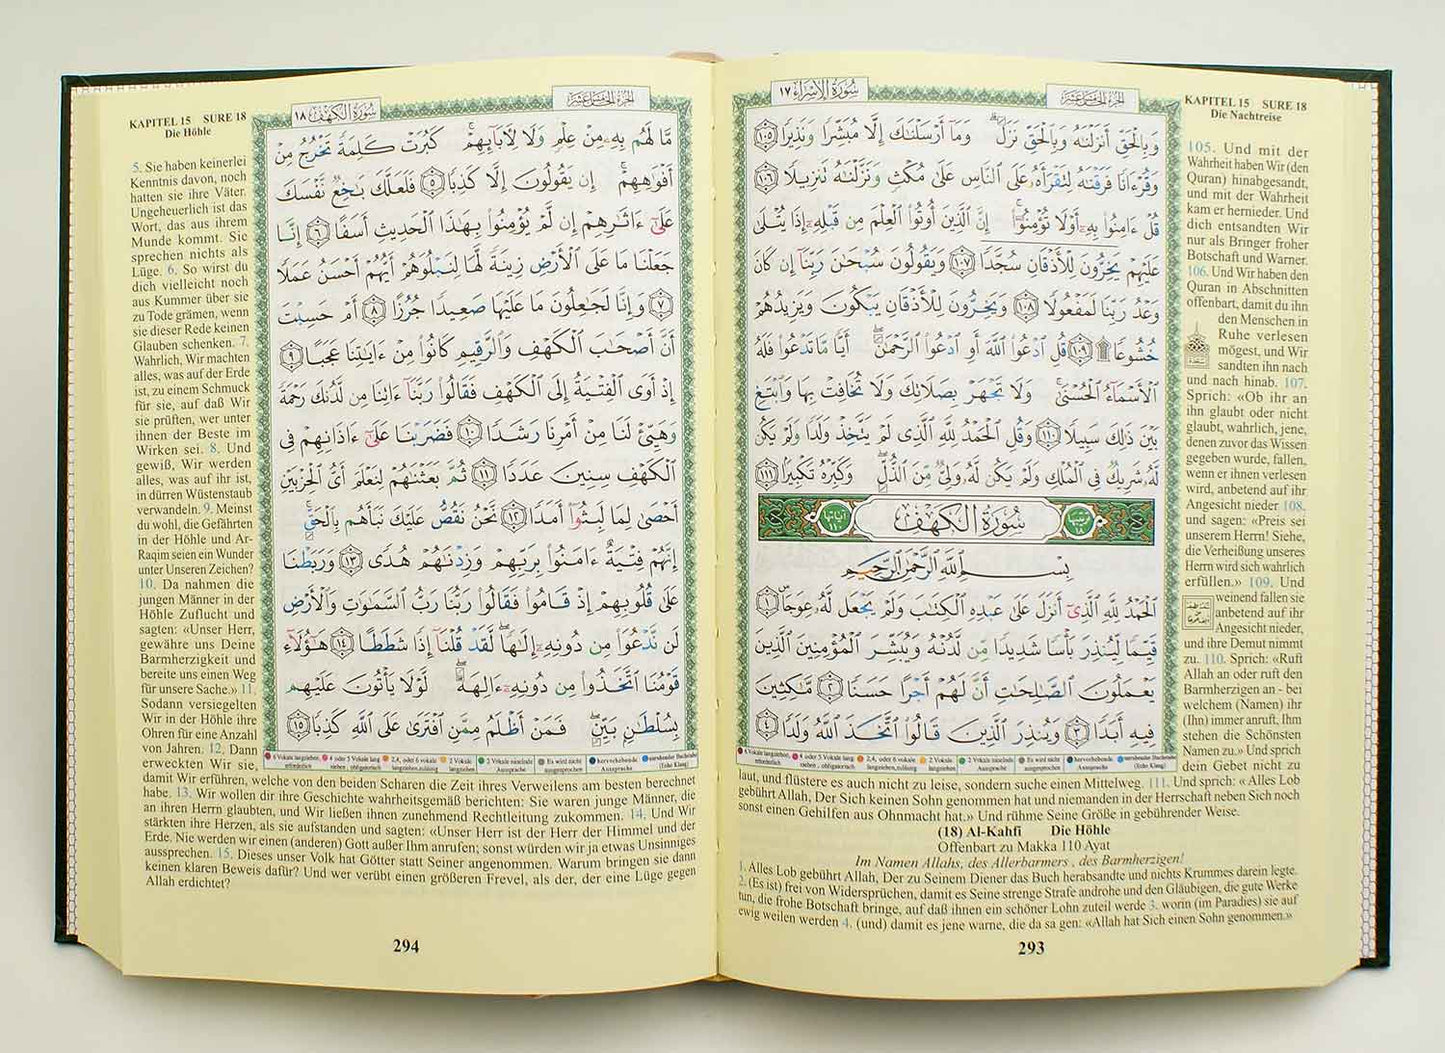 سُورَةُ الإِسْرَاءِ ١٧
الجُزْءُ الخَامِسَ عَشَرَ
وَبِالْحَقِّ أَنزَلْنَٰهُ وَبِالْحَقِّ نَزَلَ ۗ وَمَآ أَرْسَلْنَٰكَ إِلَّا مُبَشِّرًا وَنَذِيرًا ١٠٥
وَقُرْءَانًا فَرَقْنَٰهُ لِتَقْرَأَهُۥ عَلَى النَّاسِ عَلَىٰ مُكْثٍ وَنَزَّلْنَٰهُ تَنزِيلًا ١٠٦
قُلْ ءَامِنُوا۟ بِهِۦٓ أَوْ لَا تُؤْمِنُوٓا۟ ۚ إِنَّ الَّذِينَ أُوتُوا۟ الْعِلْمَ مِن قَبْلِهِۦٓ إِذَا يُتْلَىٰ
عَلَيْهِمْ يَخِرُّونَ لِلْأَذْقَانِ سُجَّدًا ١٠٧ وَيَقُولُونَ سُبْحَٰنَ رَبِّنَآ إِن كَانَ
وَعْدُ رَبِّنَا لَمَفْعُولًا ١٠٨ وَيَخِرُّونَ لِلْأَذْقَانِ يَبْكُونَ وَيَزِيدُهُمْ
خُشُوعًا ۩ ١٠٩ قُلِ ادْعُوا۟ اللَّهَ أَوِ ادْعُوا۟ الرَّحْمَٰنَ ۖ أَيًّا مَّا تَدْعُوا۟ فَلَهُ
الْأَسْمَآءُ الْحُسْنَىٰ ۚ وَلَا تَجْهَرْ بِصَلَاتِكَ وَلَا تُخَافِتْ بِهَا وَابْتَغِ
بَيْنَ ذَٰلِكَ سَبِيلًا ١١٠ وَقُلِ الْحَمْدُ لِلَّهِ الَّذِى لَمْ يَتَّخِذْ وَلَدًا وَلَمْ يَكُن
لَّهُۥ شَرِيكٌ فِى الْمُلْكِ وَلَمْ يَكُن لَّهُۥ وَلِىٌّ مِّنَ الذُّلِّ ۖ وَكَبِّرْهُ تَكْبِيرًا ١١١
سُورَةُ الكَهْفِ
بِسْمِ اللَّهِ الرَّحْمَٰنِ الرَّحِيمِ
الْحَمْدُ لِلَّهِ الَّذِىٓ أَنزَلَ عَلَىٰ عَبْدِهِ الْكِتَٰبَ وَلَمْ يَجْعَل لَّهُۥ عِوَجَا ١
قَيِّمًا لِّيُنذِرَ بَأْسًا شَدِيدًا مِّن لَّدُنْهُ وَيُبَشِّرَ الْمُؤْمِنِينَ الَّذِينَ
يَعْمَلُونَ الصَّٰلِحَٰتِ أَنَّ لَهُمْ أَجْرًا حَسَنًا ٢ مَّٰكِثِينَ
فِيهِ أَبَدًا ٣ وَيُنذِرَ الَّذِينَ قَالُوا۟ اتَّخَذَ اللَّهُ وَلَدًا ٤
KAPITEL 15 SURE 18
Die Nachtreise
105. Und mit der
Wahrheit haben Wir (den
Quran) hinabgesandt,
und mit der Wahrheit
kam er hernieder. Und
dich entsandten Wir
nur als Bringer froher
Botschaft und Warner.
106. Und Wir haben den
Quran in Abschnitten
offenbart, damit du ihn
den Menschen in
Ruhe verlesen
mögest, und Wir
sandten ihn nach
und nach hinab. 107.
Sprich: «Ob ihr an
ihn glaubt oder nicht
glaubt, wahrlich, jene,
denen zuvor das Wissen
gegeben wurde, fallen,
wenn er ihnen verlesen
wird, anbetend auf ihr
Angesicht nieder 108.
und sagen: «Preis sei
unserem Herrn! Siehe,
die Verheißung unseres
Herrn wird sich wahrlich
erfüllen.» 109. Und
weinend fallen sie
anbetend auf ihr
Angesicht nieder,
und ihre Demut nimmt
zu. 110. Sprich: «Ruft
Allah an oder ruft den
Barmherzigen an - bei
welchem (Namen) ihr
(Ihn) immer anruft, Ihm
stehen die Schönsten
Namen zu.» Und sprich
dein Gebet nicht zu
laut, und flüstere es auch nicht zu leise, sondern suche einen Mittelweg. 111. Und sprich: «Alles Lob
gebührt Allah, Der Sich keinen Sohn genommen hat und niemanden in der Herrschaft neben Sich noch
sonst einen Gehilfen aus Ohnmacht hat.» Und rühme Seine Größe in gebührender Weise.
(18) Al-Kahfi Die Höhle
Offenbart zu Makka 110 Ayat
Im Namen Allahs, des Allerbarmers , des Barmherzigen!
1. Alles Lob gebührt Allah, Der zu Seinem Diener das Buch herabsandte und nichts Krummes darein legte.
2. (Es ist) frei von Widersprüchen, damit es Seine strenge Strafe androhe und den Gläubigen, die gute Werke
tun, die frohe Botschaft bringe, auf daß ihnen ein schöner Lohn zuteil werde 3. worin (im Paradies) sie auf
ewig weilen werden 4. (und) damit es jene warne, die da sa gen: «Allah hat Sich einen Sohn genommen.»
293
الجُزْءُ الخَامِسَ عَشَرَ
سُورَةُ الكَهْفِ ١٨
مَّا لَهُم بِهِۦ مِنْ عِلْمٍ وَلَا لِءَابَآئِهِمْ ۚ كَبُرَتْ كَلِمَةً تَخْرُجُ مِنْ
أَفْوَٰهِهِمْ ۚ إِن يَقُولُونَ إِلَّا كَذِبًا ٥ فَلَعَلَّكَ بَٰخِعٌ نَّفْسَكَ
عَلَىٰٓ ءَاثَٰرِهِمْ إِن لَّمْ يُؤْمِنُوا۟ بِهَٰذَا الْحَدِيثِ أَسَفًا ٦ إِنَّا
جَعَلْنَا مَا عَلَى الْأَرْضِ زِينَةً لَّهَا لِنَبْلُوَهُمْ أَيُّهُمْ أَحْسَنُ عَمَلًا
٧ وَإِنَّا لَجَٰعِلُونَ مَا عَلَيْهَا صَعِيدًا جُرُزًا ٨ أَمْ حَسِبْتَ
أَنَّ أَصْحَٰبَ الْكَهْفِ وَالرَّقِيمِ كَانُوا۟ مِنْ ءَايَٰتِنَا عَجَبًا ٩
إِذْ أَوَى الْفِتْيَةُ إِلَى الْكَهْفِ فَقَالُوا۟ رَبَّنَآ ءَاتِنَا مِن لَّدُنكَ رَحْمَةً
وَهَيِّئْ لَنَا مِنْ أَمْرِنَا رَشَدًا ١٠ فَضَرَبْنَا عَلَىٰٓ ءَاذَانِهِمْ فِى
الْكَهْفِ سِنِينَ عَدَدًا ١١ ثُمَّ بَعَثْنَٰهُمْ لِنَعْلَمَ أَىُّ الْحِزْبَيْنِ
أَحْصَىٰ لِمَا لَبِثُوٓا۟ أَمَدًا ١٢ نَّحْنُ نَقُصُّ عَلَيْكَ نَبَأَهُم بِالْحَقِّ ۚ
إِنَّهُمْ فِتْيَةٌ ءَامَنُوا۟ بِرَبِّهِمْ وَزِدْنَٰهُمْ هُدًى ١٣ وَرَبَطْنَا
عَلَىٰ قُلُوبِهِمْ إِذْ قَامُوا۟ فَقَالُوا۟ رَبُّنَا رَبُّ السَّمَٰوَٰتِ وَالْأَرْضِ
لَن نَّدْعُوَا۟ مِن دُونِهِۦٓ إِلَٰهًا ۖ لَّقَدْ قُلْنَآ إِذًا شَطَطًا ١٤ هَٰٓؤُلَآءِ
قَوْمُنَا اتَّخَذُوا۟ مِن دُونِهِۦٓ ءَالِهَةً ۖ لَّوْلَا يَأْتُونَ عَلَيْهِم
بِسُلْطَٰنٍۭ بَيِّنٍ ۖ فَمَنْ أَظْلَمُ مِمَّنِ افْتَرَىٰ عَلَى اللَّهِ كَذِبًا ١٥
KAPITEL 15 SURE 18
Die Höhle
5. Sie haben keinerlei
Kenntnis davon, noch
hatten sie ihre Väter.
Ungeheuerlich ist das
Wort, das aus ihrem
Munde kommt. Sie
sprechen nichts als
Lüge. 6. So wirst du
dich vielleicht noch
aus Kummer über sie
zu Tode grämen, wenn
sie dieser Rede keinen
Glauben schenken. 7.
Wahrlich, Wir machten
alles, was auf der Erde
ist, zu einem Schmuck
für sie, auf daß Wir
sie prüften, wer unter
ihnen der Beste im
Wirken sei. 8. Und
gewiß, Wir werden
alles, was auf ihr ist,
in dürren Wüstenstaub
verwandeln. 9. Meinst
du wohl, die Gefährten
in der Höhle und Ar-
Raqim seien ein Wunder
unter Unseren Zeichen?
10. Da nahmen die
jungen Männer in der
Höhle Zuflucht und
sagten: «Unser Herr,
gewähre uns Deine
Barmherzigkeit und
bereite uns einen Weg
für unsere Sache.» 11.
Sodann versiegelten
Wir in der Höhle ihre
Ohren für eine Anzahl
von Jahren. 12. Dann
erweckten Wir sie,
damit Wir erführen, welche von den beiden Scharen die Zeit ihres Verweilens am besten berechnet
habe. 13. Wir wollen dir ihre Geschichte wahrheitsgemäß berichten: Sie waren junge Männer, die
an ihren Herrn glaubten, und Wir ließen ihnen zunehmend Rechtleitung zukommen. 14. Und Wir
stärkten ihre Herzen, als sie aufstanden und sagten: «Unser Herr ist der Herr der Himmel und der
Erde. Nie werden wir einen (anderen) Gott außer Ihm anrufen; sonst würden wir ja etwas Unsinniges
aussprechen. 15. Dieses unser Volk hat Götter statt Seiner angenommen. Warum bringen sie dann
keinen klaren Beweis dafür? Und wer verübt einen größeren Frevel, als der, der eine Lüge gegen
Allah erdichtet?
294